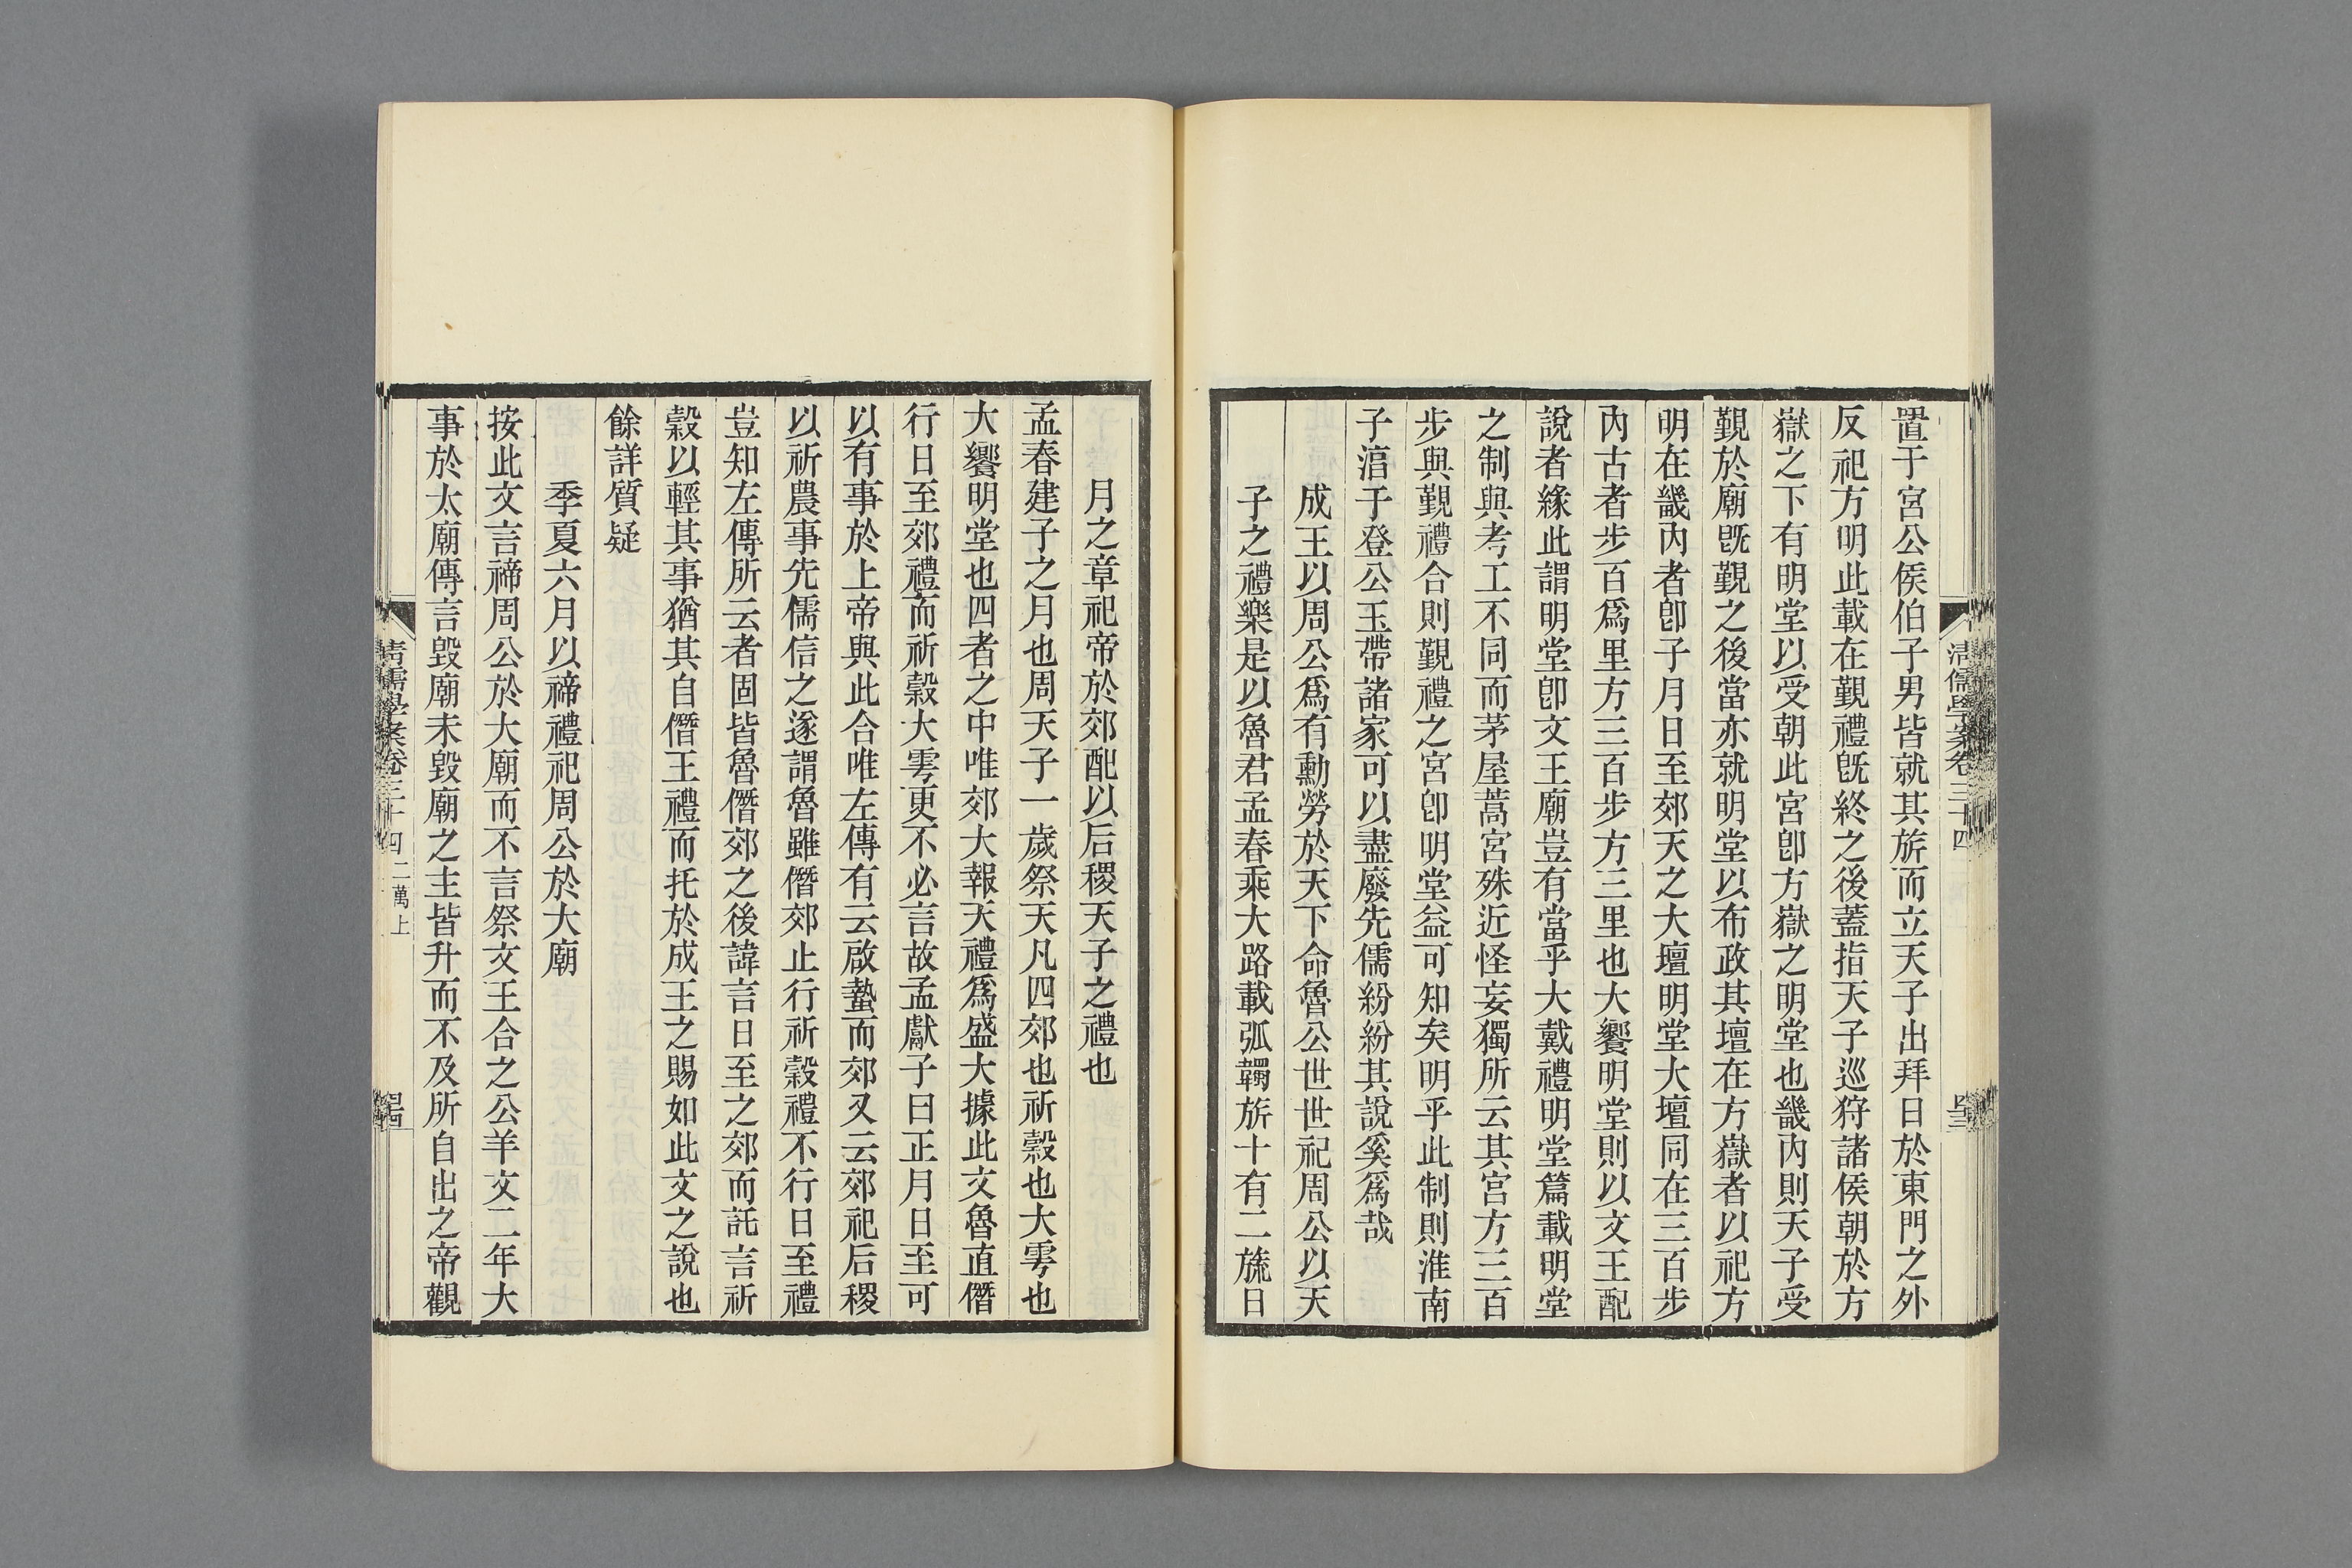 置于宮公侯伯子男皆就其旂而立天子出拜日於東門之外
反祀方明此載在覲禮旣終之後蓋指天子巡狩諸侯朝於方
嶽之下有明堂以受朝此宮卽方嶽之明堂也畿內則天子受
覲於廟旣覲之後當亦就明堂以布政其壇在方嶽者以祀方
明在畿內者卽子月日至郊天之大壇明堂大壇同在三百步
內古者步百爲里方三百步方三里也大饗明堂則以文王配
說者緣此謂明堂卽文王廟豈有當乎大戴禮明堂篇載明堂
之制與考工不同而茅屋蒿宮殊近怪妄獨所云其宮方三百
步與覲禮合則覲禮之宮卽明堂益可知矣明乎此制則淮南
子涫于登公玉帶諸家可以盡廢先儒紛紛其說奚爲哉
成王以周公爲有勳勞於天下命魯公世世祀周公以天
子之禮樂是以魯君孟春乘大路載弧韣旂十有二旒日
清儒學案卷三十四
月之章祀帝於郊配以后稷天子之禮也
孟春建子之月也周天子一歲祭天凡四郊也祈穀也大雩也
大饗明堂也四者之中唯郊大報天禮爲盛大據此文魯直僭
行日至郊禮而祈穀大雩更不必言故孟獻子曰正月日至可
以有事於上帝與此合唯左傳有云啟蟄而郊又云郊祀后稷
以祈農事先儒信之遂謂魯雖僭郊止行祈穀禮不行日至禮
豈知左傳所云者固皆魯僭郊之後諱言日至之郊而託言祈
穀以輕其事猶其自僭王禮而托於成王之賜如此文之說也
餘詳質疑
季夏六月以禘禮祀周公於大廟
按此文言禘周公於大廟而不言祭文王合之公羊文二年大
事於太廟傳言毀廟未毀廟之主皆升而不及所自出之帝觀
清儒學案卷三十四 二萬上